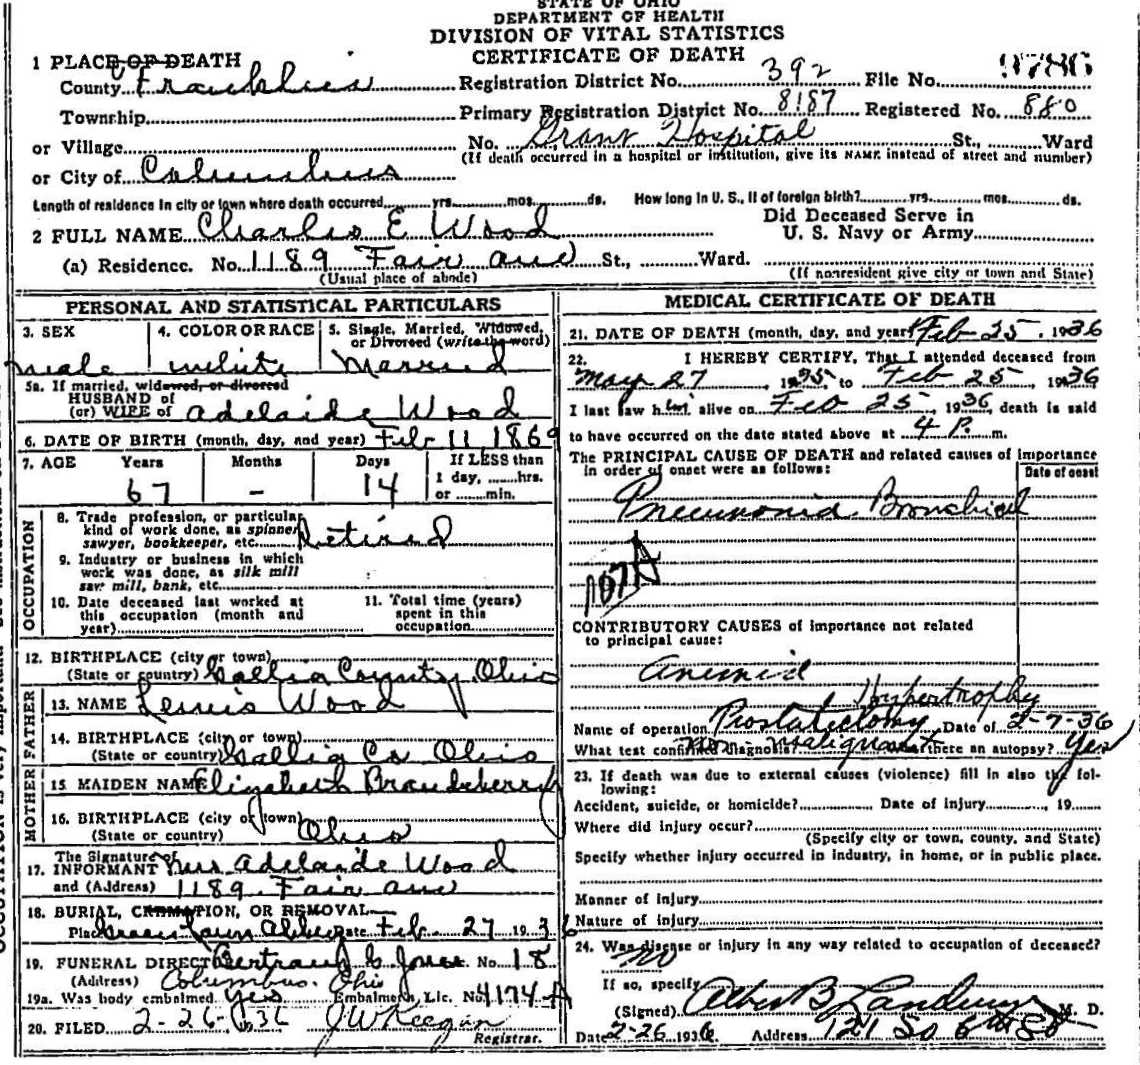 STATE OF OHIO
DEPARTMENT OF HEALTH
DIVISION OF VITAL STATISTICS
CERTIFICATE OF DEATH
1 PLACE OF DEATH
County Franklin Registration District No. 392 File No.
Township Primary Registration District No. 8187 Registered No. 880
or Village No. Grant Hospital St., Ward
(If death occurred in a hospital or institution, give its NAME instead of street and number)
or City of Columbus
Length of residence in city or town where death occurred yrs. mos. ds. How long in U. S., if of foreign birth? yrs. mos. ds.
2 FULL NAME Charles E Wood Did Deceased Serve in U. S. Navy or Army
(a) Residence. No. 1189 Fair ave St., Ward.
(Usual place of abode) (If nonresident give city or town and State)
PERSONAL AND STATISTICAL PARTICULARS
3. SEX 4. COLOR OR RACE 5. Single, Married, Widowed, or Divorced (write the word)
male white Married
5a. If married, widowed, or divorced
HUSBAND of
(or) WIFE of Adelaide Wood
6. DATE OF BIRTH (month, day, and year) Feb 11 1869
7. AGE Years Months Days If LESS than
67 - 14 1 day, hrs.
or min.
OCCUPATION
8. Trade, profession, or particular
kind of work done, as spinner,
sawyer, bookkeeper, etc. Retired
9. Industry or business in which
work was done, as silk mill
saw mill, bank, etc.
10. Date deceased last worked at
this occupation (month and
year)
11. Total time (years)
spent in this
occupation
12. BIRTHPLACE (city or town)
(State or country) Gallia County, Ohio
FATHER
13. NAME Lewis Wood
14. BIRTHPLACE (city or town)
(State or country) Gallia Co Ohio
MOTHER
15. MAIDEN NAME Elizabeth Brandeberry
16. BIRTHPLACE (city or town)
(State or country) Ohio
17. The Signature of
INFORMANT Mrs Adelaide Wood
and (Address) 1189 Fair ave
18. BURIAL, CREMATION, OR REMOVAL
Place Green Lawn Abbey Date Feb 27 1936
19. FUNERAL DIRECTOR Bertrand C Jones No. 18
(Address) Columbus. Ohio
19a. Was body embalmed yes Embalmer's Lic. No. 4174-A
20. FILED 2-26-1936 J W Keegan
Registrar.
MEDICAL CERTIFICATE OF DEATH
21. DATE OF DEATH (month, day, and year) Feb 25, 1936
22. I HEREBY CERTIFY, That I attended deceased from
May 27, 1935 to Feb 25, 1936
I last saw him alive on Feb 25, 1936, death is said
to have occurred on the date stated above at 4 P. m.
The PRINCIPAL CAUSE OF DEATH and related causes of importance
in order of onset were as follows: Date of onset
Pneumonia Bronchial
107A
CONTRIBUTORY CAUSES of importance not related
to principal cause:
Anemia
Hypertrophy
Name of operation Prostatectomy Date of 2-7-36
What test confirmed diagnosis? non malignant Was there an autopsy? Yes
23. If death was due to external causes (violence) fill in also the following:
Accident, suicide, or homicide? Date of injury, 19
Where did injury occur?
(Specify city or town, county, and State)
Specify whether injury occurred in industry, in home, or in public place.
Manner of injury
Nature of injury
24. Was disease or injury in any way related to occupation of deceased?
No
If so, specify
(Signed) B M. D.
Date 2-26 1936. Address 121 So 6th St